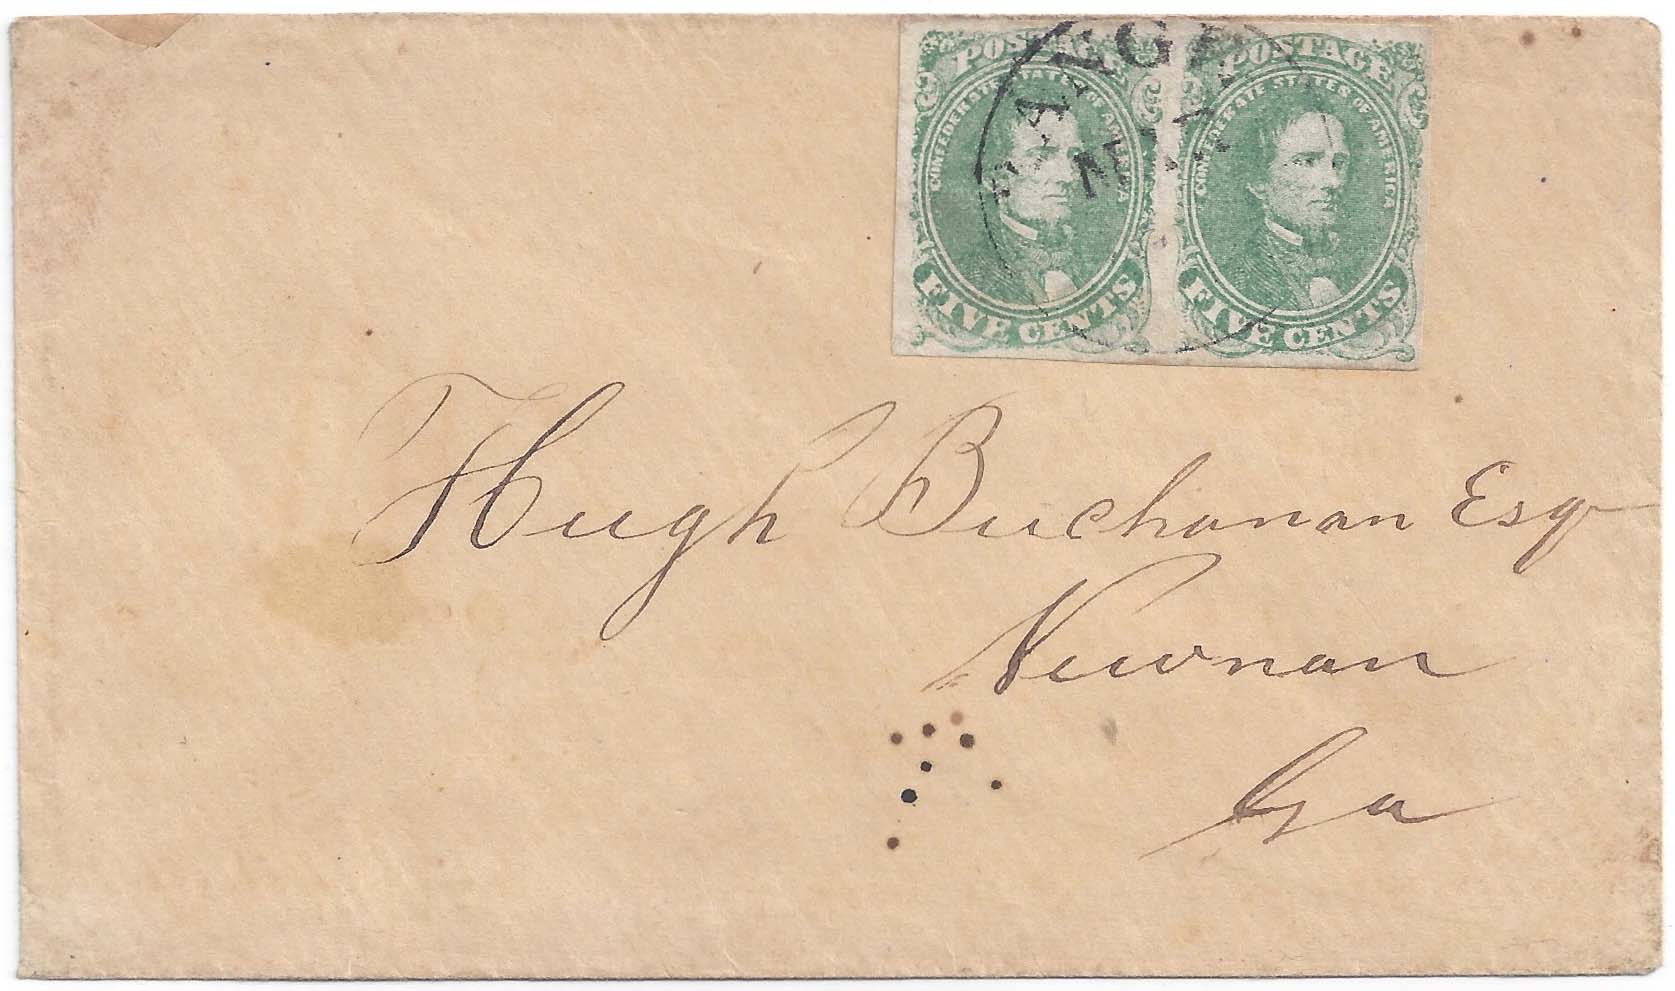 POSTAGE
CONFEDERATE STATES OF AMERICA
FIVE CENTS
POSTAGE
CONFEDERATE STATES OF AMERICA
FIVE CENTS
Hugh Buchanan Esqr
Newnan
Ga